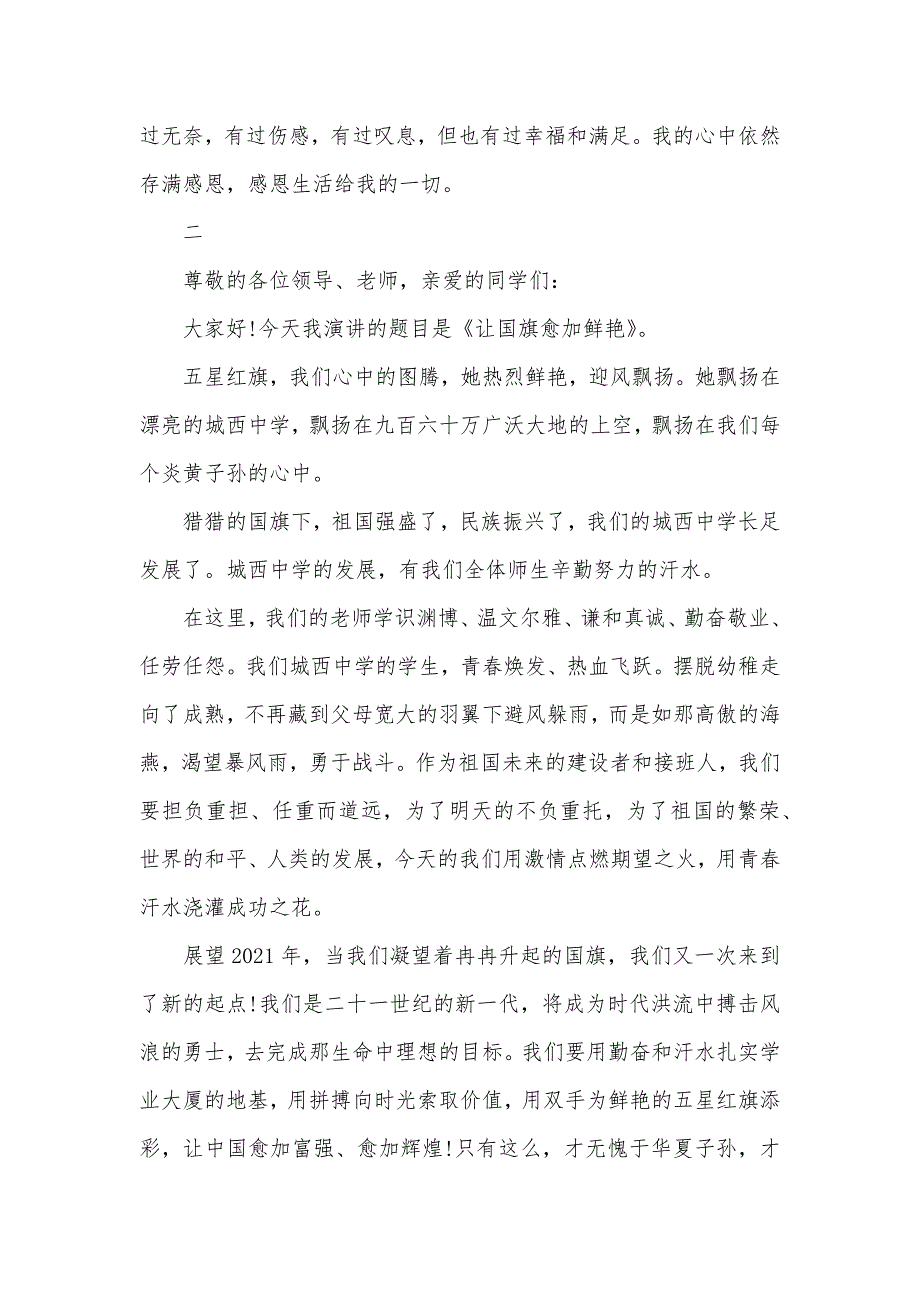 过无奈，有过伤感，有过叹息，但也有过幸福和满足。我的心中依然
存满感恩，感恩生活给我的一切。
二
尊敬的各位领导、老师，亲爱的同学们：
大家好!今天我演讲的题目是《让国旗愈加鲜艳》。
五星红旗，我们心中的图腾，她热烈鲜艳，迎风飘扬。她飘扬在
漂亮的城西中学，飘扬在九百六十万广沃大地的上空，飘扬在我们每
个炎黄子孙的心中。
猎猎的国旗下，祖国强盛了，民族振兴了，我们的城西中学长足
发展了。城西中学的发展，有我们全体师生辛勤努力的汗水。
在这里，我们的老师学识渊博、温文尔雅、谦和真诚、勤奋敬业、
任劳任怨。我们城西中学的学生，青春焕发、热血飞跃。摆脱幼稚走
向了成熟，不再藏到父母宽大的羽翼下避风躲雨，而是如那高傲的海
燕，渴望暴风雨，勇于战斗。作为祖国未来的建设者和接班人，我们
要担负重担、任重而道远，为了明天的不负重托，为了祖国的繁荣、
世界的和平、人类的发展，今天的我们用激情点燃期望之火，用青春
汗水浇灌成功之花。
展望 2021 年，当我们凝望着冉冉升起的国旗，我们又一次来到
了新的起点!我们是二十一世纪的新一代，将成为时代洪流中搏击风
浪的勇士，去完成那生命中理想的目标。我们要用勤奋和汗水扎实学
业大厦的地基，用拼搏向时光索取价值，用双手为鲜艳的五星红旗添
彩，让中国愈加富强、愈加辉煌!只有这么，才无愧于华夏子孙，才